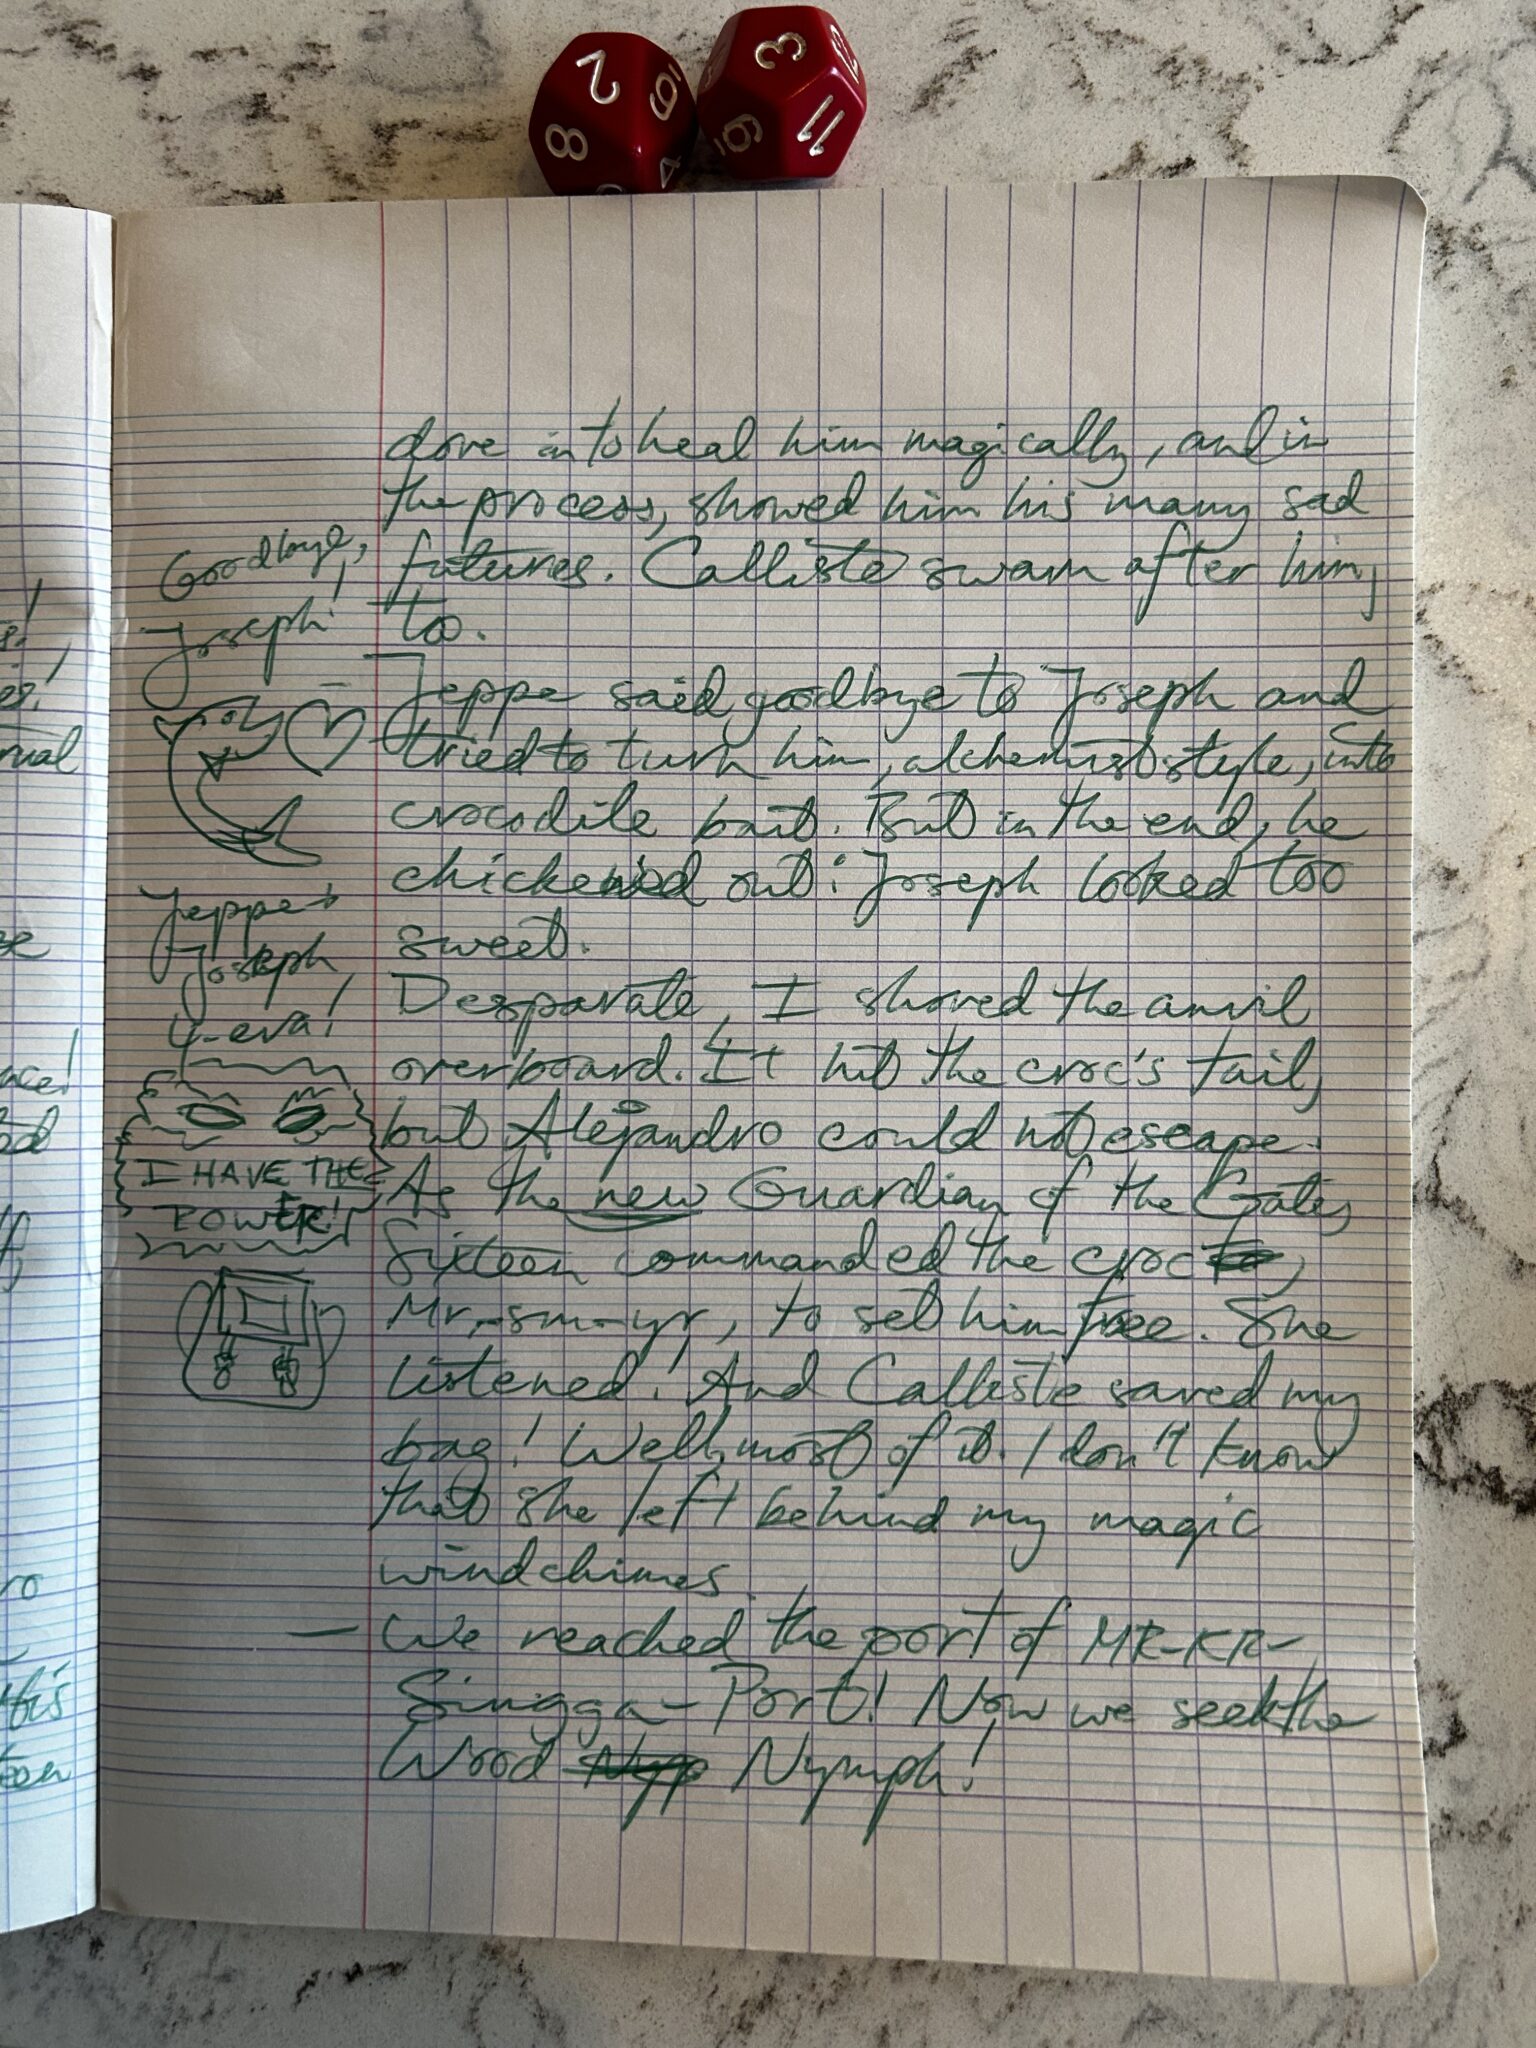 2
8
6
3
11
9
dove in to heal him magically, and in
the process, showed him his many sad
futures. Calliste swam after him,
to.
Jeppe said goodbye to Joseph and
tried to turn him, alchemist style, into
crocodile bait. But in the end, he
chickened out: Joseph looked too
sweet.
Desparate, I shoved the anvil
overboard. It hit the croc's tail,
but Alejandro could not escape.
As the new Guardian of the Gate,
Sixteen commanded the croc,
Mr-sm-yr, to set him free. She
listened! And Calliste saved my
bag! Well, most of it. I don't know
that she left behind my magic
windchimes.
— We reached the port of MR-KR-
Singga-Port! Now we seek the
Wood Nymph!
Goodbye,
Joseph!
Jeppe +
Joseph
4-eva!
I HAVE THE
POWER!